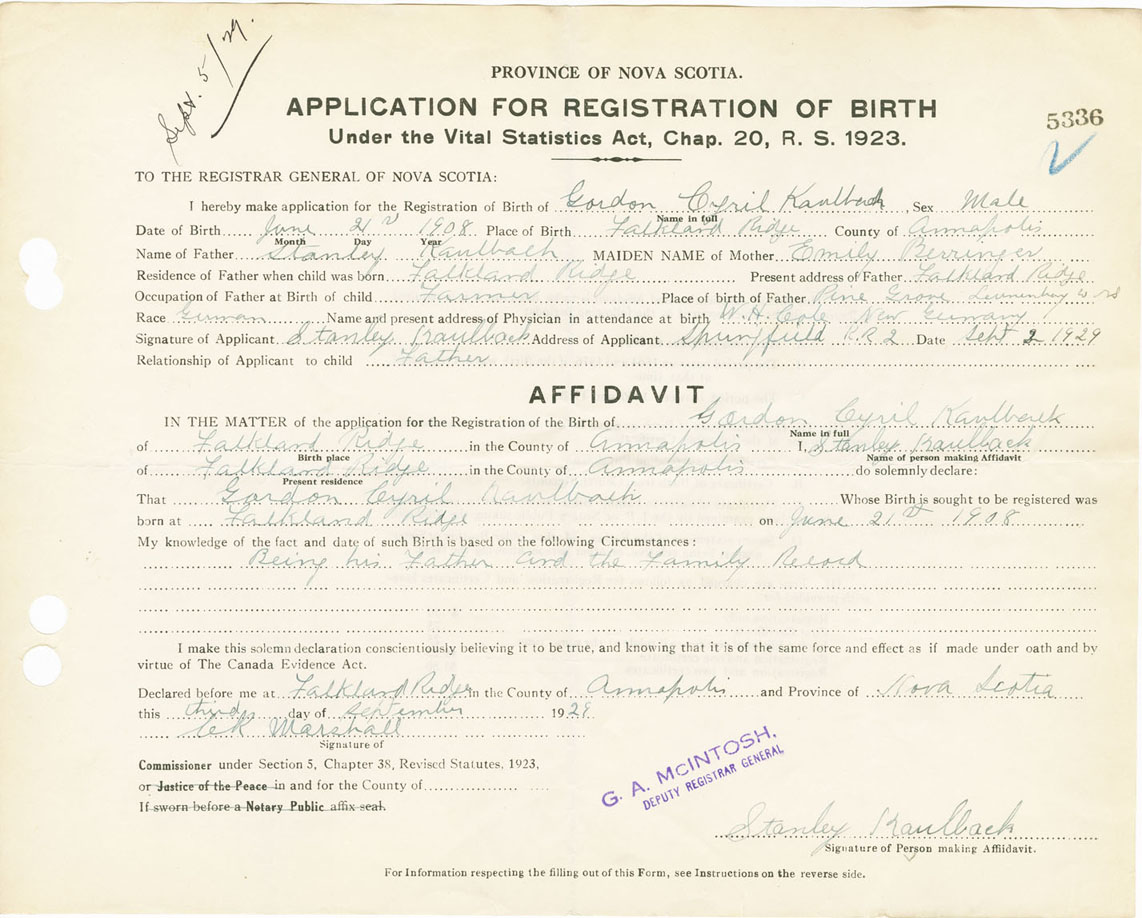 Sept. 5/29.
PROVINCE OF NOVA SCOTIA.
APPLICATION FOR REGISTRATION OF BIRTH
5336
Under the Vital Statistics Act, Chap. 20, R. S. 1923.
TO THE REGISTRAR GENERAL OF NOVA SCOTIA:
I hereby make application for the Registration of Birth of Gordon Cyril Kaulback, Sex Male
Name in full
Date of Birth June 21 1908 Place of Birth Falkland Ridge County of Annapolis
Month Day Year
Name of Father Stanley Kaulback MAIDEN NAME of Mother Emily Berringer
Residence of Father when child was born Falkland Ridge Present address of Father Falkland Ridge
Occupation of Father at Birth of child Farmer Place of birth of Father Pine Grove Lunenburg Co NS
Race German Name and present address of Physician in attendance at birth W. H. Cole New Germany
Signature of Applicant Stanley Kaulback Address of Applicant Springfield R.R 2 Date Sept 3 1929
Relationship of Applicant to child Father
AFFIDAVIT
IN THE MATTER of the application for the Registration of the Birth of Gordon Cyril Kaulback
Name in full
of Falkland Ridge in the County of Annapolis I, Stanley Kaulback
Birth place Name of person making Affidavit
of Falkland Ridge in the County of Annapolis do solemnly declare:
Present residence
That Gordon Cyril Kaulback Whose Birth is sought to be registered was
born at Falkland Ridge on June 21st 1908
My knowledge of the fact and date of such Birth is based on the following Circumstances:
Being his Father and the Family Record
I make this solemn declaration conscientiously believing it to be true, and knowing that it is of the same force and effect as if made under oath and by
virtue of The Canada Evidence Act.
Declared before me at Falkland Ridge in the County of Annapolis and Province of Nova Scotia
this third day of September 1929
CK Marshall
Signature of
Commissioner under Section 5, Chapter 38, Revised Statutes, 1923,
or Justice of the Peace in and for the County of
If sworn before a Notary Public affix seal.
G. A. McINTOSH,
DEPUTY REGISTRAR GENERAL
Stanley Kaulback
Signature of Person making Affidavit.
For Information respecting the filling out of this Form, see Instructions on the reverse side.